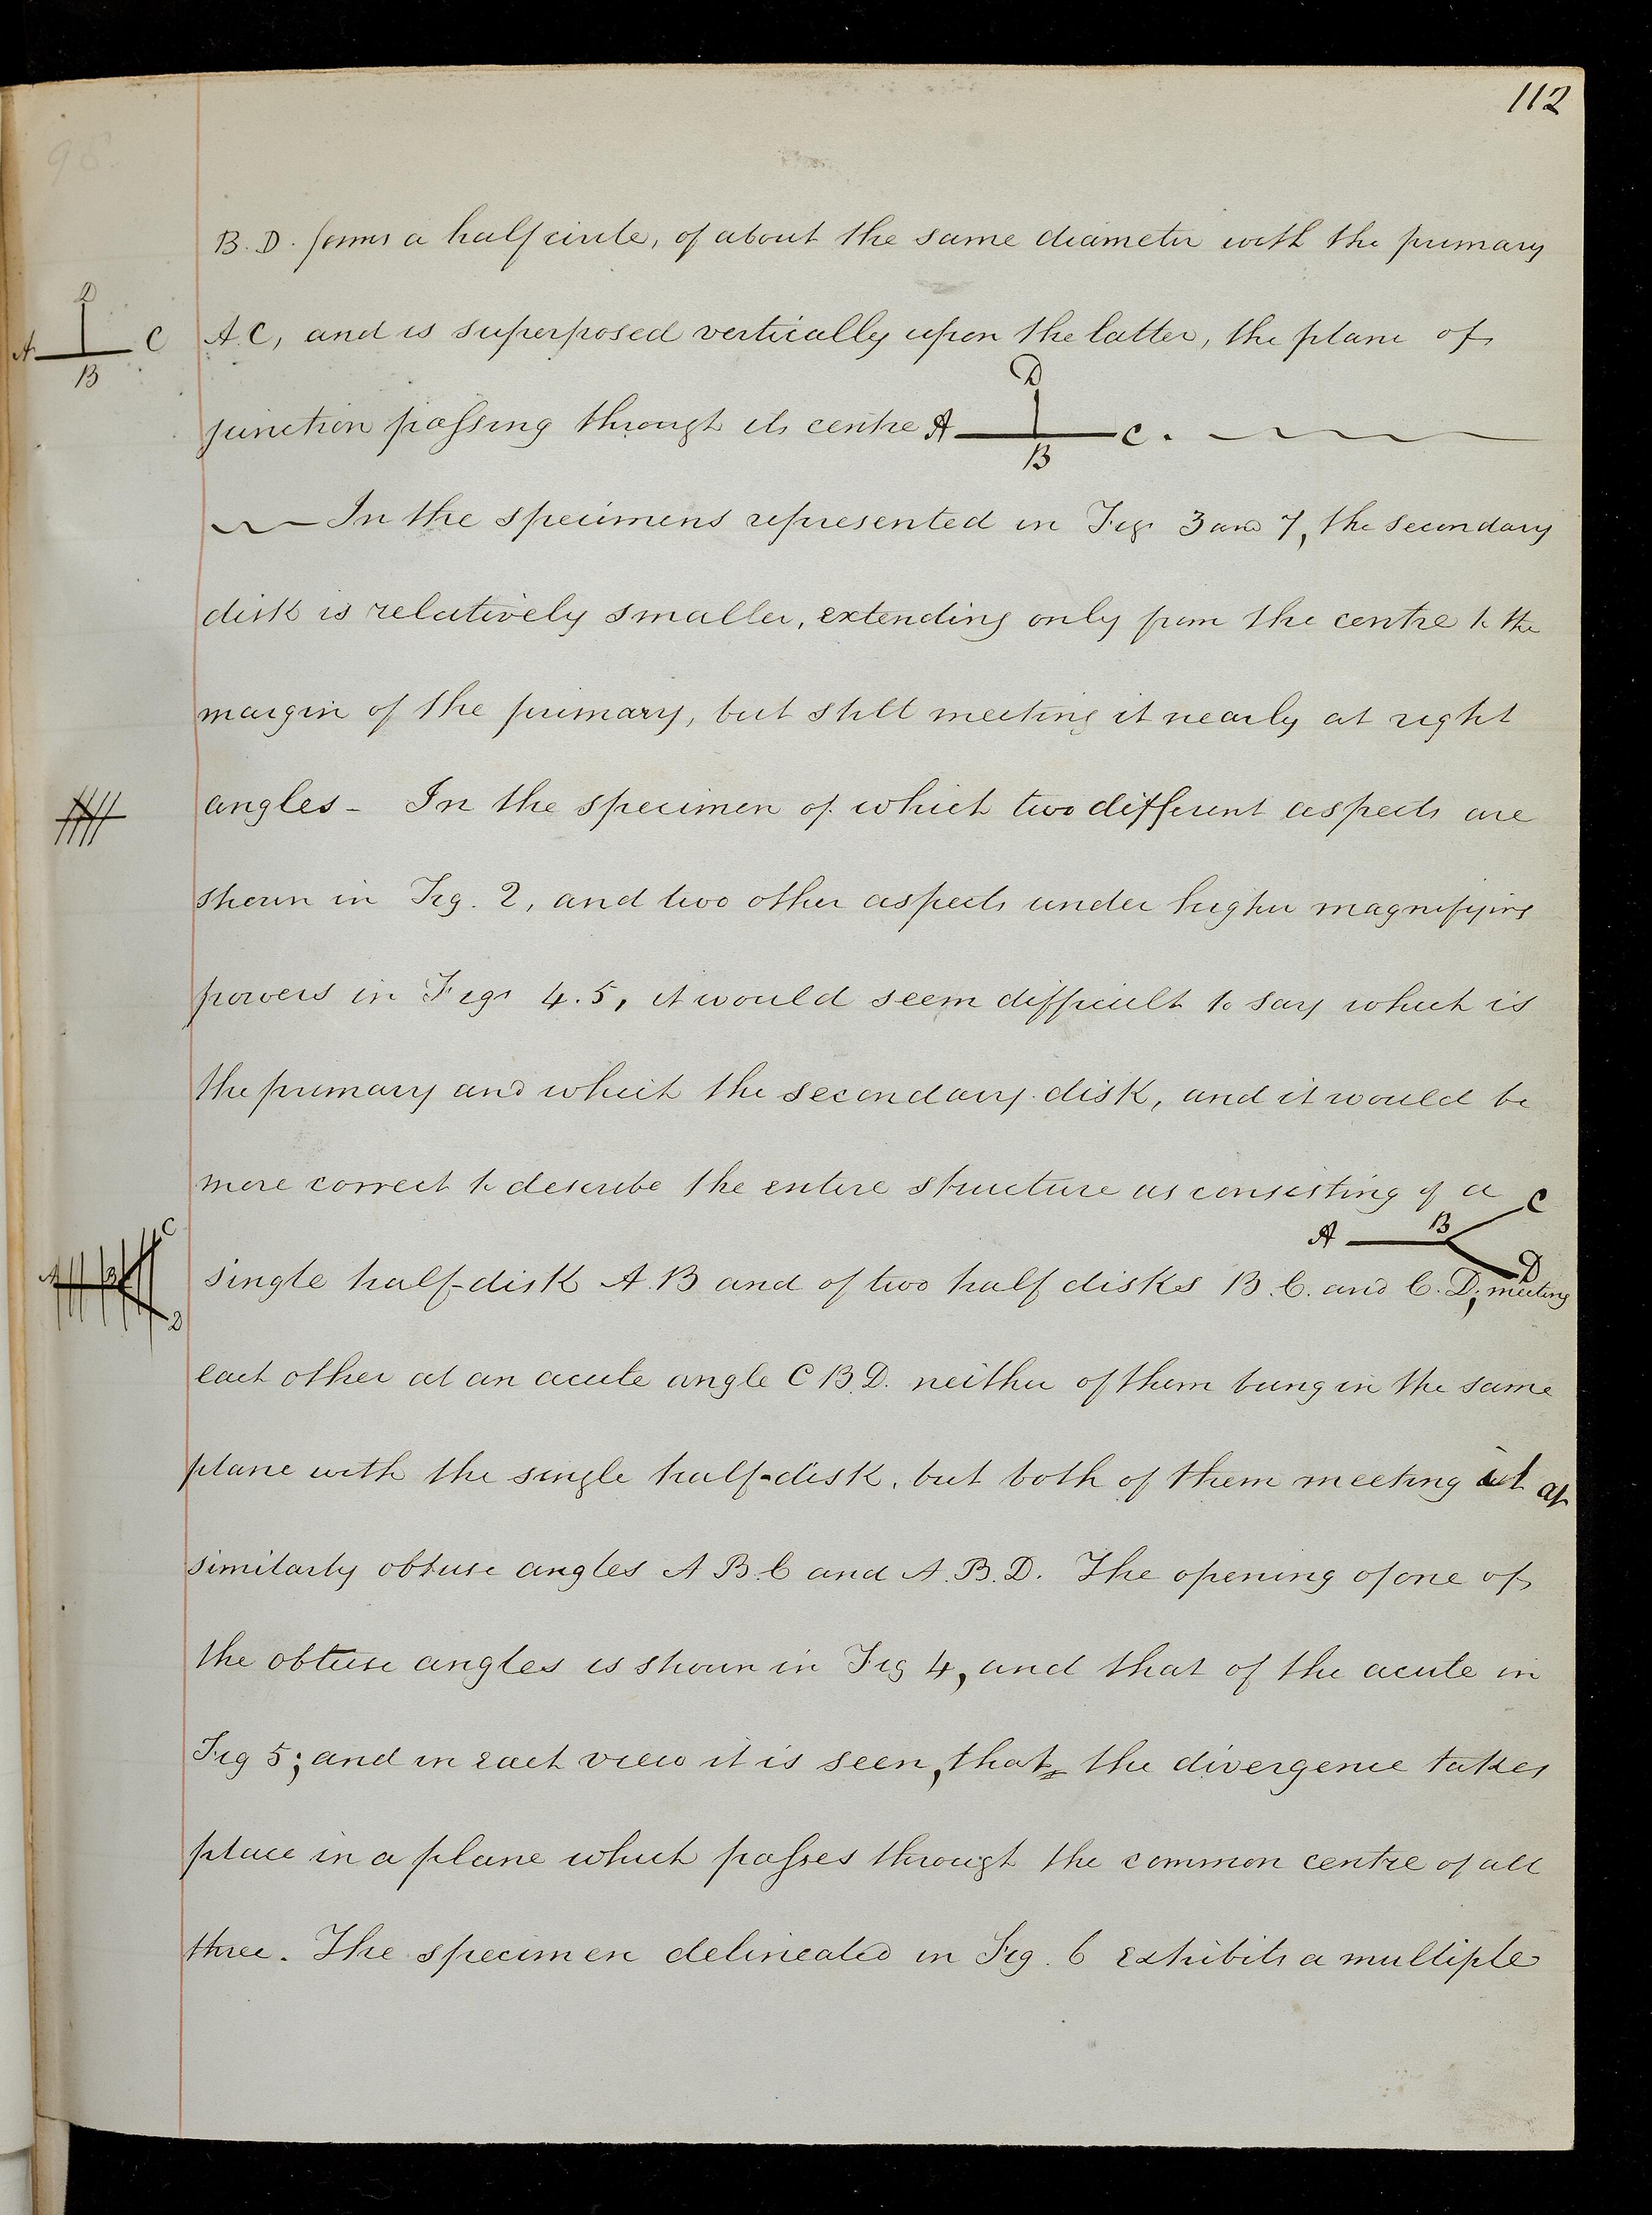 112
98.
B. D. forms a half circle, of about the same diameter with the primary
D
A C
B
A C, and is superposed vertically upon the latter, the plane of
junction passing through its centre A D B C.
In the specimens represented in Figs 3 and 7, the secondary
disk is relatively smaller, extending only from the centre to the
margin of the primary, but still meeting it nearly at right
angles - In the specimen of which two different aspects are
shown in Fig. 2, and two other aspects under higher magnifying
powers in Figs 4. 5, it would seem difficult to say which is
the primary and which the secondary disk, and it would be
more correct to describe the entire structure as consisting of a
A B C D
C
A B
D
single half-disk A. B and of two half disks B. C. and C. D; meeting
each other at an acute angle C B. D. neither of them being in the same
plane with the single half-disk, but both of them meeting it at
similarly obtuse angles A B. C and A. B. D. The opening of one of
the obtuse angles is shown in Fig 4, and that of the acute in
Fig 5; and in each view it is seen, that the divergence takes
place in a plane which passes through the common centre of all
three. The specimen delineated in Fig. 6 exhibits a multiple